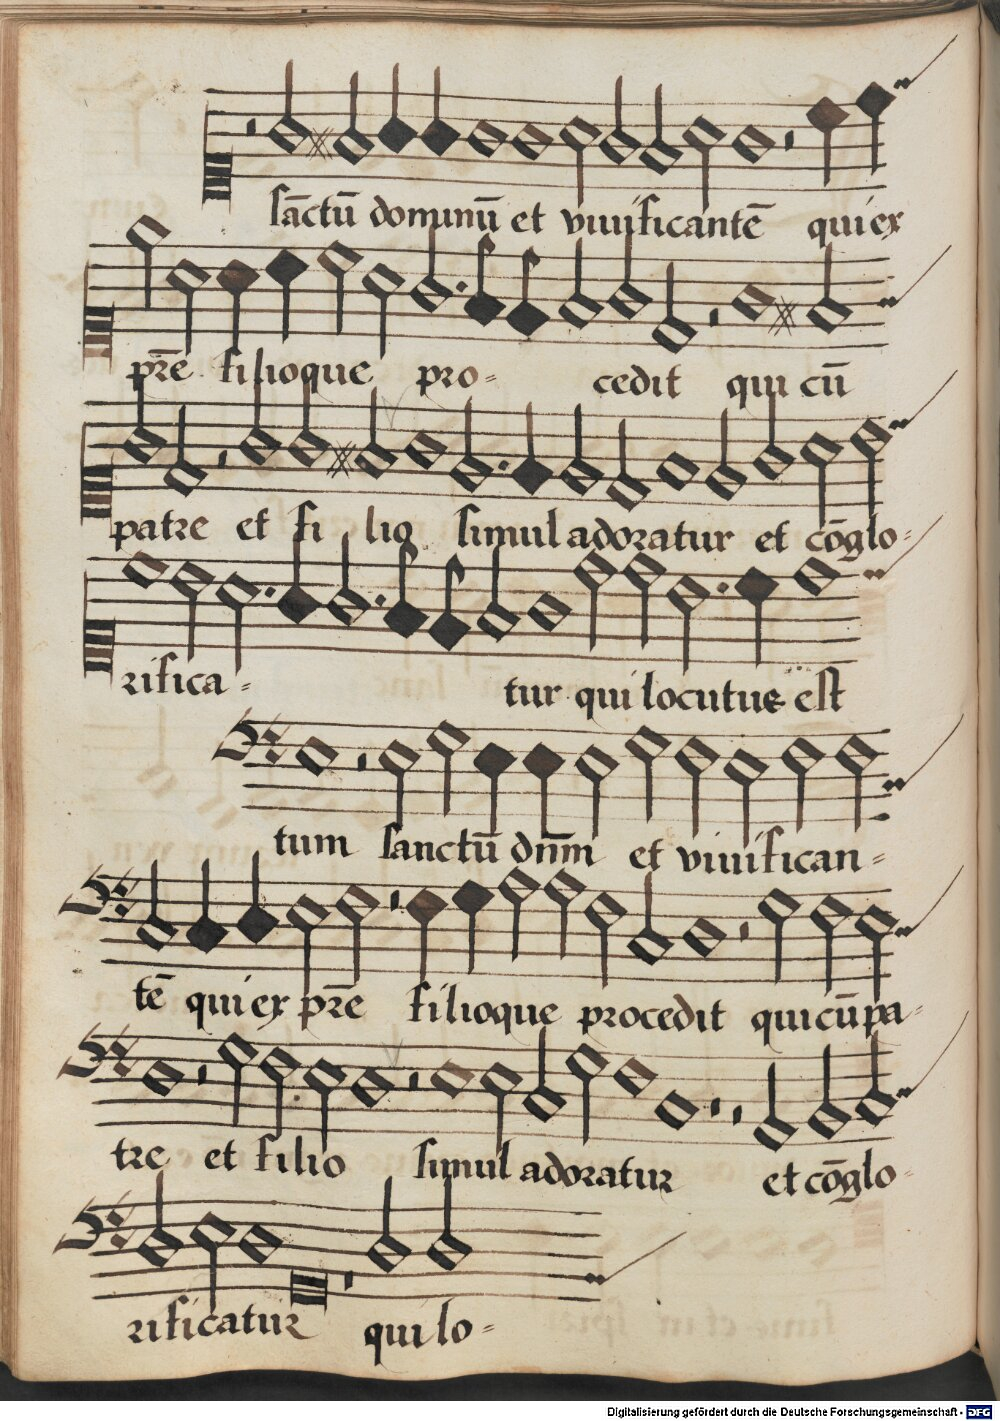 sāctū dominū et viuificantē qui ex
prē e filioque pro- cedit qui cū
patre et fi lio simul adoratur et cōglo-
rifica- tur qui locutus est
tum sanctū dn̄m et viuifican-
tē qui ex prē filioque procedit qui cū pa-
tre et filio simul adoratur et cōglo-
rificatur qui lo-
Digitalisierung gefördert durch die Deutsche Forschungsgemeinschaft - DFG